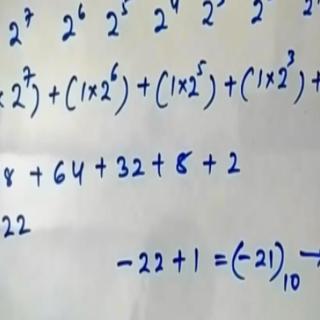 2⁷ 2⁶ 2⁵ 2⁴ 2³ 2
×2⁷) + (1×2⁶) + (1×2⁵) + (1×2³) +
8 + 64 + 32 + 8 + 2
22
-22 + 1 = (-21)₁₀ →